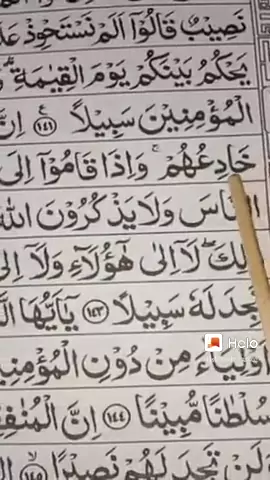 نَصِيْبٌ قَالُوْٓا اَلَمْ نَسْتَحْوِذْ
يَحْكُمُ بَيْنَكُمْ يَوْمَ الْقِيٰمَةِ
الْمُؤْمِنِيْنَ سَبِيْلًا ﴿۱۴۱﴾ اِنَّ
خَادِعُهُمْ ۚ وَاِذَا قَامُوْٓا اِلَى
النَّاسَ وَلَا يَذْكُرُوْنَ اللّٰهَ
لِكَ ۖ لَآ اِلٰى هٰٓؤُلَآءِ وَلَآ اِلٰى
تَجِدَ لَهٗ سَبِيْلًا ﴿۱۴۳﴾ يٰٓاَيُّهَا
Halo
اَوْلِيَآءَ مِنْ دُوْنِ الْمُؤْمِنِ
سُلْطٰنًا مُّبِيْنًا ﴿۱۴۴﴾ اِنَّ الْمُنٰفِقِ
وَلَنْ تَجِدَ لَهُمْ نَصِيْرًا ﴿۱۴۵﴾